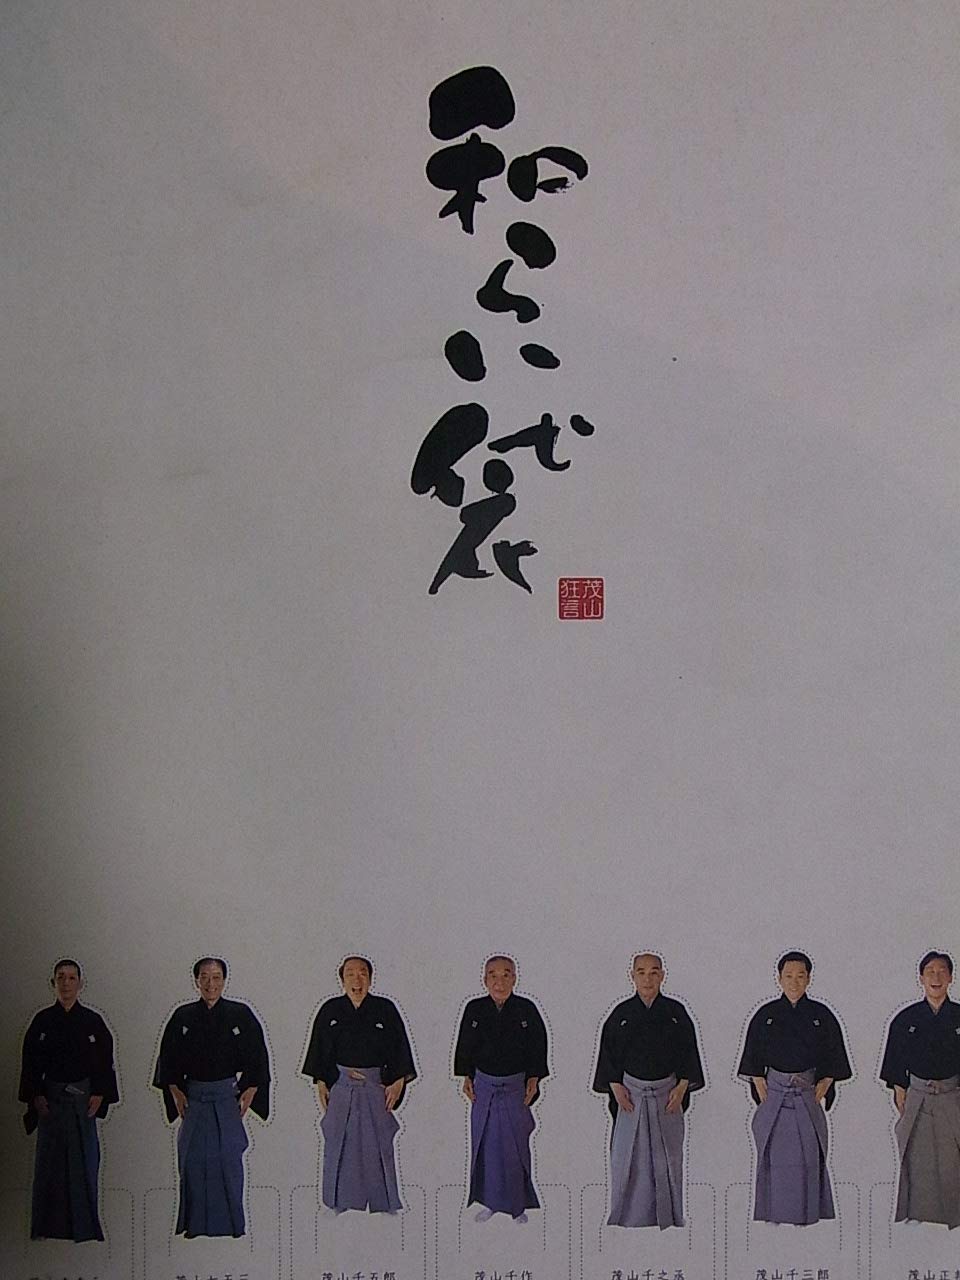 和らい袋
茂山
狂言
茂山七五三
茂山千五郎
茂山千作
茂山千之丞
茂山千三郎
茂山正邦